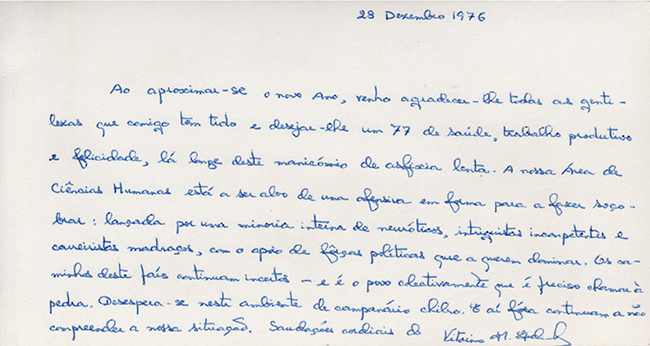 28 Dezembro 1976
Ao aproximar-se o novo Ano, venho agradecer-lhe todas as genti-
lezas que comigo tem tido e desejar-lhe um 77 de saúde, trabalho produtivo
e felicidade, lá longe deste manicómio de asfixia lenta. A nossa Área de
Ciências Humanas está a ser alvo de uma ofensiva em forma para a fazer soço-
brar: lançada por uma minoria interna de neuróticos, intriguistas incompetentes e
carreiristas madraços, com o apoio de fôrças políticas que a querem dominar. Os ca-
minhos deste país continuam incertos – e é o povo colectivamente que é preciso chamar à
pedra. Desespera-se neste ambiente de campanário chilro. E aí fóra continuam a não
compreender a nossa situação. Saudações cordiais do Vitorino M.